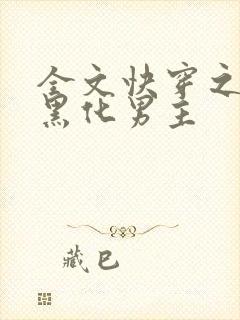 全文快穿之
黑化男主
藏巴